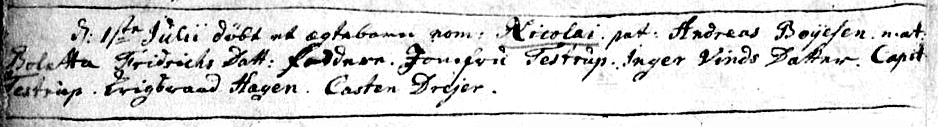 d: 1ste Julii døbt et ægtebarn nom: Nicolai. pat: Andreas Boyesen. mat:
Boletta Fridrichs Datt: faddere. Jomfru Testrup. Inger Vinds Datter. Capit
Testrup. Krigsraad Hagen. Casten Drejer.